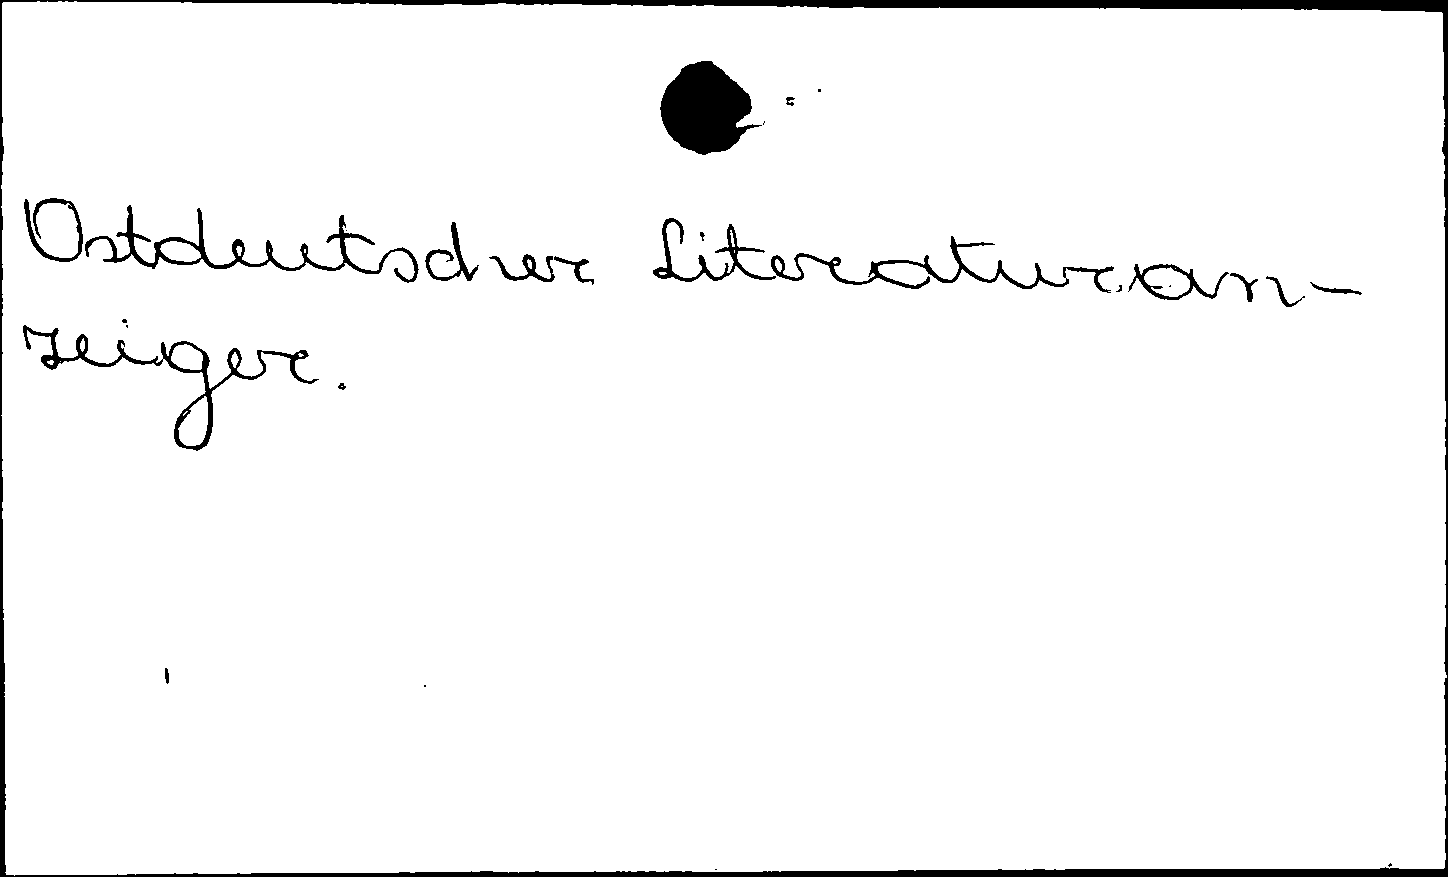 Ostdeutscher Literaturan-
zeiger.